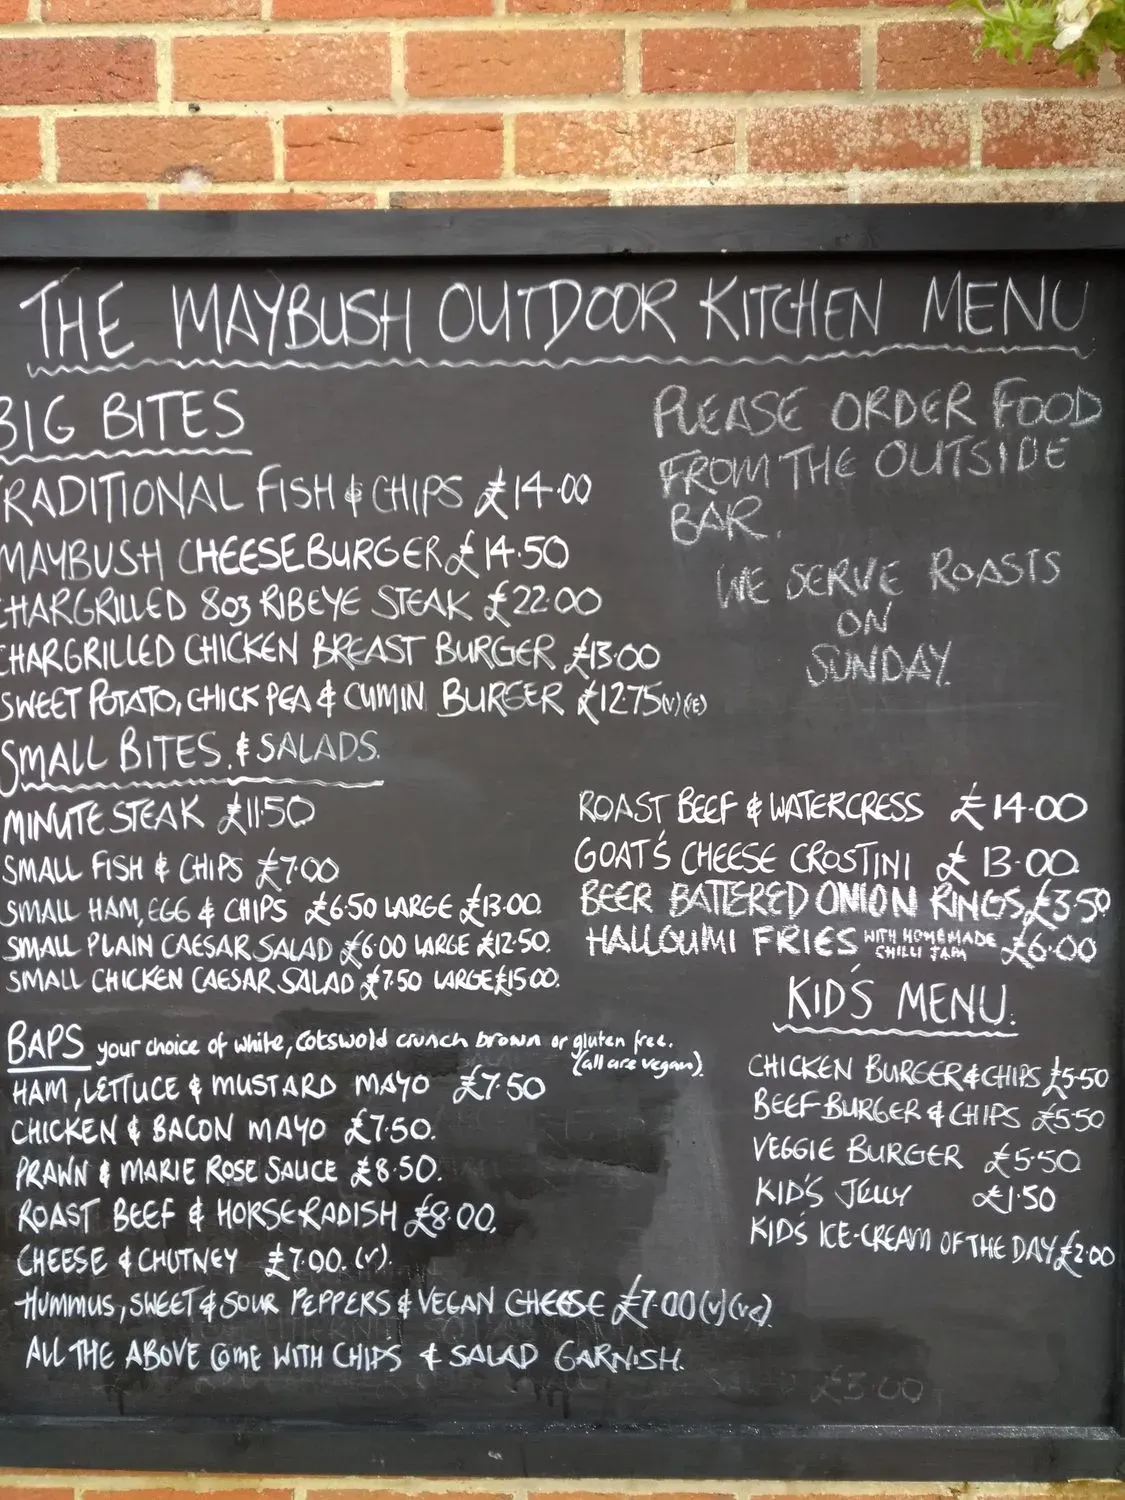 THE MAYBUSH OUTDOOR KITCHEN MENU
BIG BITES
TRADITIONAL FISH & CHIPS £14.00
MAYBUSH CHEESEBURGER £14.50
CHARGRILLED 8oz RIBEYE STEAK £22.00
CHARGRILLED CHICKEN BREAST BURGER £13.00
SWEET POTATO, CHICK PEA & CUMIN BURGER £12.75 (v) (VE)
PLEASE ORDER FOOD
FROM THE OUTSIDE
BAR.
WE SERVE ROASTS
ON
SUNDAY.
SMALL BITES & SALADS.
MINUTE STEAK £11.50
SMALL FISH & CHIPS £7.00
SMALL HAM, EGG & CHIPS £6.50 LARGE £13.00.
SMALL PLAIN CAESAR SALAD £6.00 LARGE £12.50.
SMALL CHICKEN CAESAR SALAD £7.50 LARGE £15.00.
ROAST BEEF & WATERCRESS £14.00
GOAT'S CHEESE CROSTINI £13.00
BEER BATTERED ONION RINGS £3.50
HALLOUMI FRIES WITH HOMEMADE CHILLI JAM £6.00
BAPS your choice of white, Cotswold crunch brown or gluten free.
(all are vegan).
HAM, LETTUCE & MUSTARD MAYO £7.50
CHICKEN & BACON MAYO £7.50.
PRAWN & MARIE ROSE SAUCE £8.50.
ROAST BEEF & HORSERADISH £8.00.
CHEESE & CHUTNEY £7.00. (v).
HUMMUS, SWEET & SOUR PEPPERS & VEGAN CHEESE £7.00 (v) (ve)
ALL THE ABOVE COME WITH CHIPS & SALAD GARNISH.
KID'S MENU.
CHICKEN BURGER & CHIPS £5.50
BEEF BURGER & CHIPS £5.50
VEGGIE BURGER £5.50
KID'S JELLY £1.50
KID'S ICE-CREAM OF THE DAY £2.00
£5.00